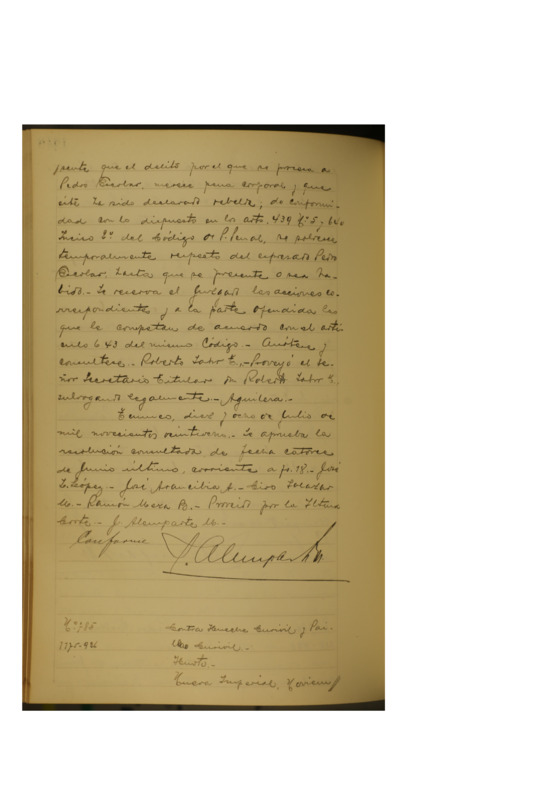 sente que el delito por el que se procesa a
Pedro Escobar, merece pena corporal y que
éste ha sido declarado rebelde; de conformi-
dad con lo dispuesto en los arts. 439 Nº 5,
Inciso 2º del Código de P. Penal, se sobresee
temporalmente respecto del expresado Pedro
Escobar, hasta que se presente o sea ha-
bido.- Se reserva al Juzgado las acciones co-
rrespondientes y a la parte ofendida las
que le competan de acuerdo con el artí-
culo 643 del mismo Código.- Anótese y
consúltese.- Roberto E.- Proveyó el Se-
ñor Secretario Titular don Roberto E,
subrogando legalmente.- Aguilera.-
Temuco, diez y ocho de Julio de
mil novecientos veintinueve.- Se aprueba la
resolución consultada de fecha catorce
de Junio último, corriente a fs. 18.- José
L. López.- José Arancibia A.- Ciro Salazar
M.- Ramón Meza B.- Proveído por la Iltma
Corte.- J. Alemparte M.-
Conforme
J. Alemparte M
Nº 795
1175-926
Contra y Pan-
Hurto.-
Nueva Imperial, Noviem